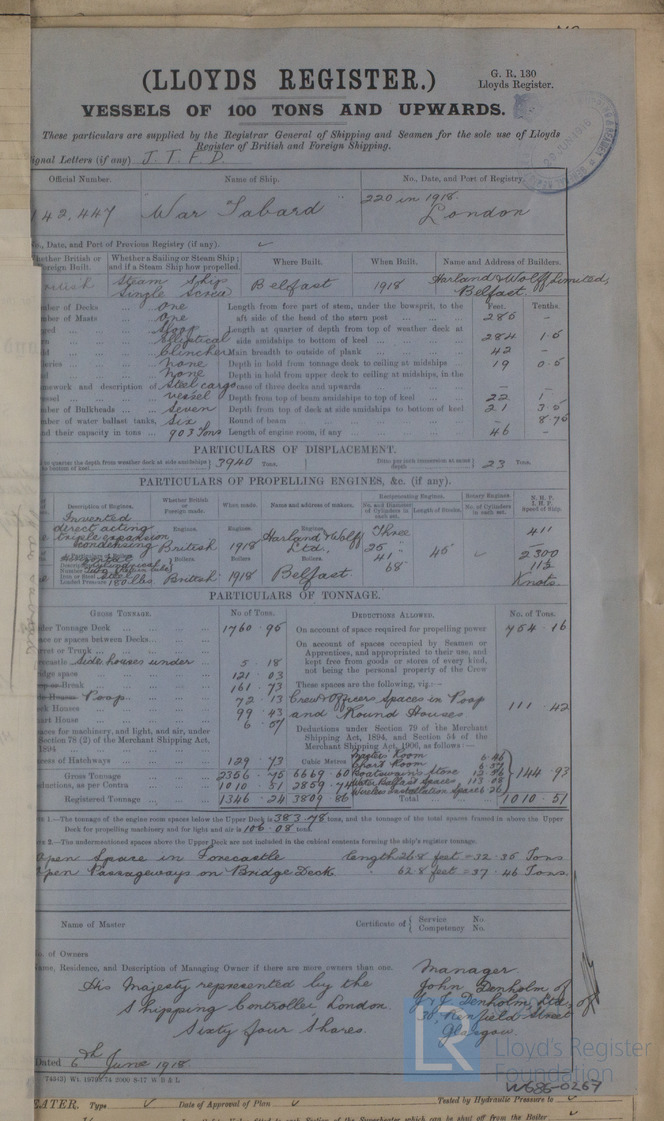 (LLOYDS REGISTER.)
G. R. 130
Lloyds Register.
VESSELS OF 100 TONS AND UPWARDS.
These particulars are supplied by the Registrar General of Shipping and Seamen for the sole use of Lloyds
Register of British and Foreign Shipping.
ignal Letters (if any) J. T. F. D.
Official Number. Name of Ship. No., Date, and Port of Registry.
142,447 "War Tabard" 220 in 1918. London
Date, and Port of Previous Registry (if any).
hether British or oreign Built. Whether a Sailing or Steam Ship; and if a Steam Ship how propelled. Where Built. When Built. Name and Address of Builders.
British Steam Ship Single Screw Belfast 1918 Harland & Wolff Limited, Belfast.
mber of Decks One Length from fore part of stem, under the bowsprit, to the Feet. Tenths.
mber of Masts One aft side of the head of the stern post 285 –
ged Sloop Length at quarter of depth from top of weather deck at
Elliptical side amidships to bottom of keel 284 1.5
Clincher Main breadth to outside of plank 42 –
leries None Depth in hold from tonnage deck to ceiling at midships 19 0.5
None Depth in hold from upper deck to ceiling at midships, in the
mework and description of Steel cargo case of three decks and upwards – –
essel vessel Depth from top of beam amidships to top of keel 22 1
mber of Bulkheads Seven Depth from top of deck at side amidships to bottom of keel 21 3.5
mber of water ballast tanks, Six Round of beam – 8.75
nd their capacity in tons 903 Tons Length of engine room, if any 46 –
PARTICULARS OF DISPLACEMENT.
to quarter the depth from weather deck at side amidships to bottom of keel 3940 Tons. Ditto per inch immersion at same depth 23 Tons.
PARTICULARS OF PROPELLING ENGINES, &c. (if any).
Description of Engines. Whether British or Foreign made. When made. Name and address of makers. Reciprocating Engines. Rotary Engines. N. H. P. I. H. P. Speed of Ship.
No. and Diameter of Cylinders in each set. Length of Stroke. No. of Cylinders in each set.
Inverted direct acting triple expansion condensing Engines. British Engines. 1918 Engines. Harland & Wolff Ltd., Three 25" 41" 68" 45" 411 2300
Boilers British Boilers 1918 Boilers Belfast. 11½ Knots.
Number Two
Iron or Steel Steel
Loaded Pressure 180 lbs.
PARTICULARS OF TONNAGE.
GROSS TONNAGE. No of Tons. DEDUCTIONS ALLOWED. No. of Tons.
der Tonnage Deck 1760.95 On account of space required for propelling power 754.16
ace or spaces between Decks On account of spaces occupied by Seamen or
rret or Trunk Apprentices, and appropriated to their use, and
ecastle Side houses under 5.18 kept free from goods or stores of every kind,
idge space 121.03 not being the personal property of the Crew
Break 161.73 These spaces are the following, viz.:—
Poop 72.13 Crew & Officers Spaces in Poop 111.42
ck Houses 99.43 and Round Houses
hart House 6.57 Deductions under Section 79 of the Merchant
paces for machinery, and light, and air, under Shipping Act, 1894, and Section 54 of the
Section 78 (2) of the Merchant Shipping Act, Merchant Shipping Act, 1906, as follows:—
1894 Master's Room 6.46
cess of Hatchways 129.73 Cubic Metres Chart Room 6.57
Gross Tonnage 2356.75 6669.60 Boatswain's Store 12.56 144.93
ductions, as per Contra 1010.51 2859.74 Water Ballast Spaces, 113.08
Wireless Installation Space 6.26
Registered Tonnage 1346.24 3809.86 Total 1010.51
1.—The tonnage of the engine room spaces below the Upper Deck is 383.78 tons, and the tonnage of the total spaces framed in above the Upper
Deck for propelling machinery and for light and air is 106.08 tons.
2.—The undermentioned spaces above the Upper Deck are not included in the cubical contents forming the ship's register tonnage.
Open Space in Forecastle length 26.8 feet = 32.35 Tons.
Open Passageways on Bridge Deck 62.8 feet = 37.46 Tons.
Name of Master Certificate of { Service No. Competency No.
of Owners
ame, Residence, and Description of Managing Owner if there are more owners than one.
His Majesty represented by the
Shipping Controller, London.
Sixty four Shares.
Manager
John Denholm of
J. & J. Denholm, Ltd., of
Street
Glasgow.
Dated 6th June 1918.
Lloyd's Register
Foundation
W686-0267
EATER. Type Date of Approval of Plan Tested by Hydraulic Pressure to